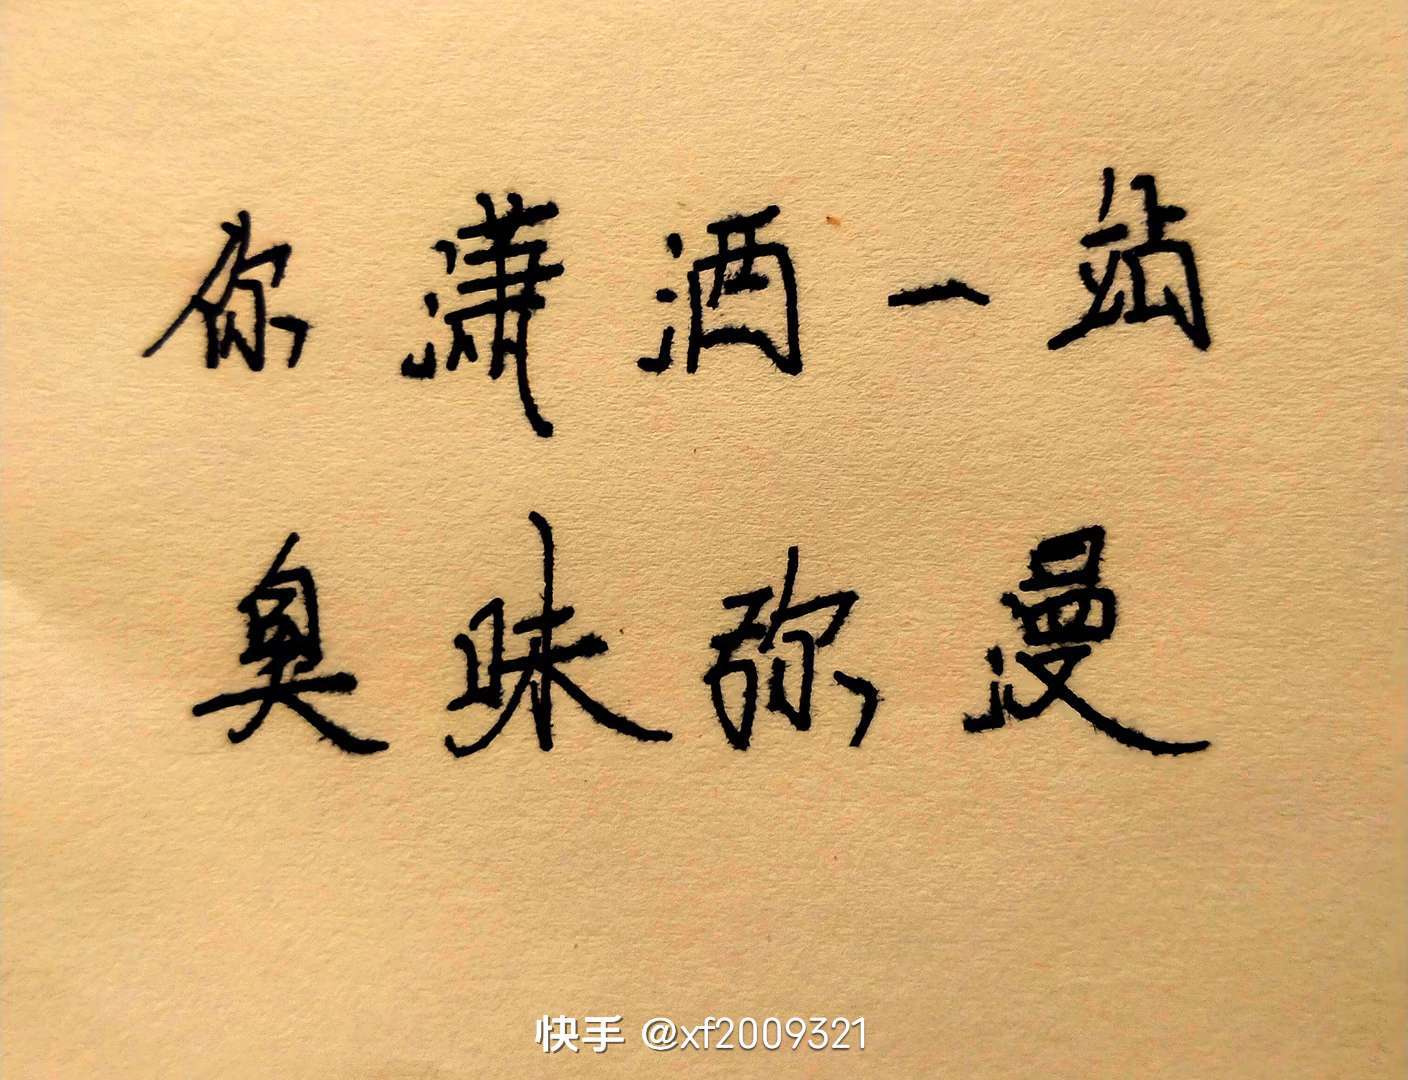 你潇洒一站
臭味弥漫
快手 @xf2009321